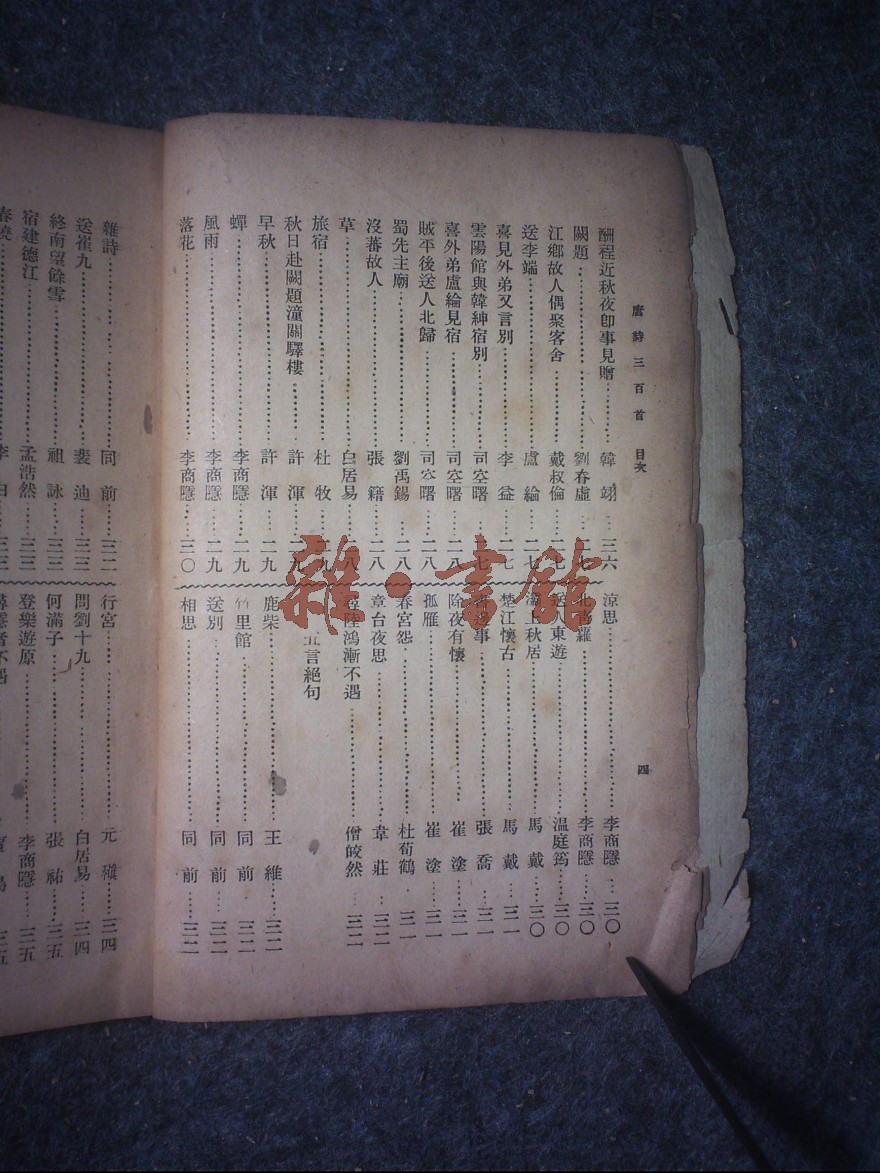 唐詩三百首 目次
四
酬程近秋夜卽事見贈 韓翃 二六
闕題 劉眘虛 二七
江鄉故人偶聚客舍 戴叔倫 二七
送李端 盧綸 二七
喜見外弟又言別 李益 二七
雲陽館與韓紳宿別 司空曙 二七
喜外弟盧綸見宿 司空曙 二八
賊平後送人北歸 司空曙 二八
蜀先主廟 劉禹錫 二八
沒蕃故人 張籍 二八
草 白居易 二八
旅宿 杜牧 二九
秋日赴闕題潼關驛樓 許渾 二九
早秋 許渾 二九
蟬 李商隱 二九
風雨 李商隱 二九
落花 李商隱 三〇
涼思 李商隱 三〇
北青蘿 李商隱 三〇
送人東遊 温庭筠 三〇
灞上秋居 馬戴 三〇
楚江懷古 馬戴 三一
書邊事 張喬 三一
除夜有懷 崔塗 三一
孤雁 崔塗 三一
春宮怨 杜荀鶴 三一
章台夜思 韋莊 三二
尋陸鴻漸不遇 僧皎然 三二
五言絕句
鹿柴 王維 三二
竹里館 同前 三二
送別 同前 三二
相思 同前 三二
雜詩 同前 三二
送崔九 裴迪 三三
終南望餘雪 祖詠 三三
宿建德江 孟浩然 三三
春曉
行宮 元稹 三四
問劉十九 白居易 三四
何滿子 張祜 三五
登樂遊原 李商隱 三五
尋隱者不遇 三五
雜·書館